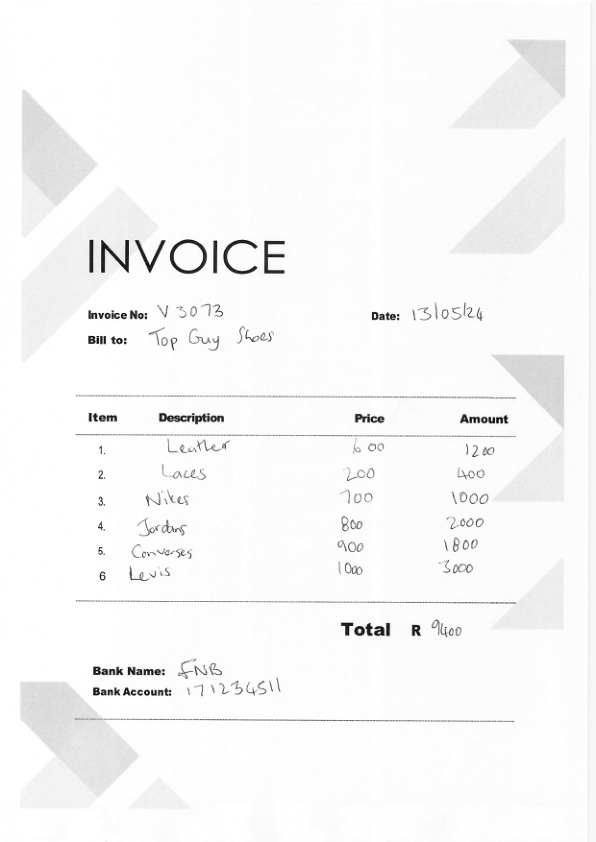 INVOICE
Invoice No: V3073 Date: 13/05/24
Bill to: Top Guy Shoes
Item Description Price Amount
1. Leather 600 1200
2. Laces 200 400
3. Nikes 700 1000
4. Jordans 800 2000
5. Converses 900 1800
6 Levis 1000 3000
Total R 9400
Bank Name: FNB
Bank Account: 171234511